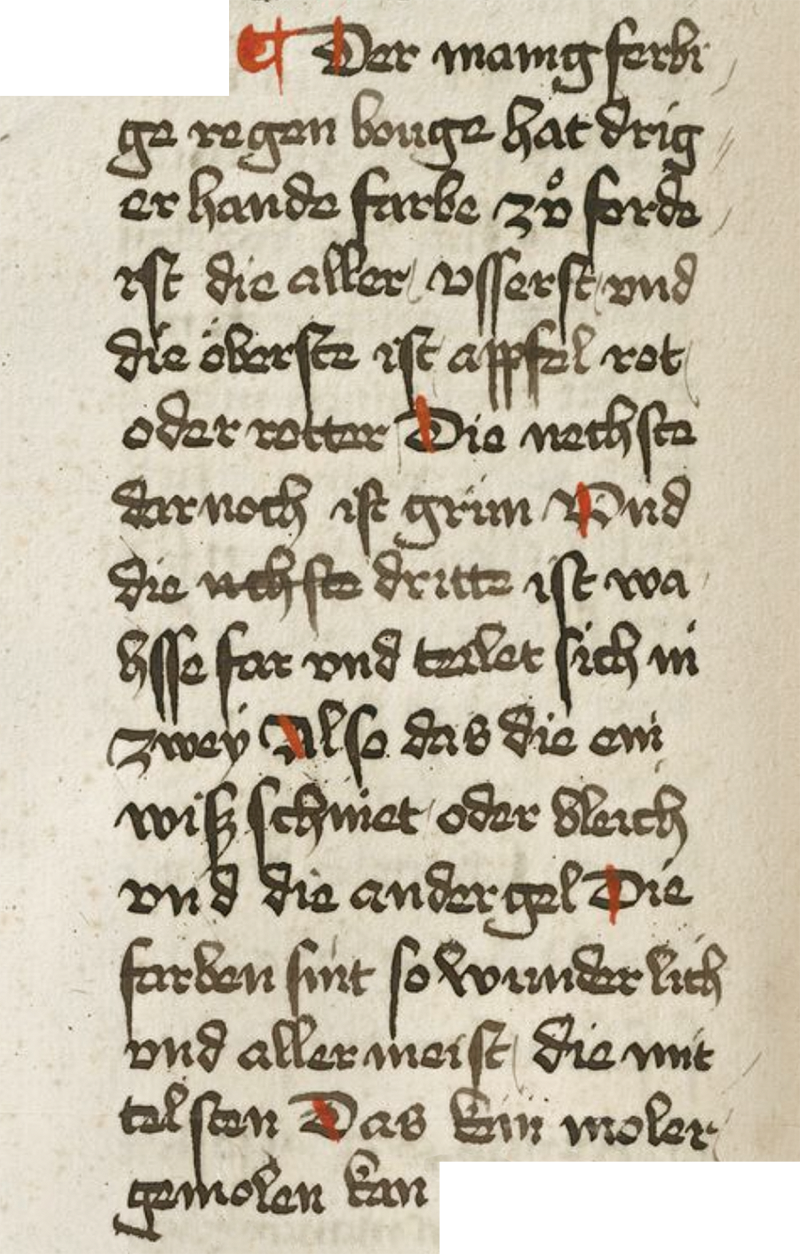 ¶ Der manigferbi
ge regen bouge hat drig
er hande farbe zů forde
ist die aller vsserst vnd
die öberste ist appfel rot
oder rotter Die nechste
dar noch ist grün Vnd
die nehste dritte ist wa
hsse far vnd teilet sich in
zwey Also das die ein
wisz schinet oder bleich
vnd die ander gel Die
farben sint so wunderlich
vnd aller meist die mit
telsten Das kein moler
gemolen kan